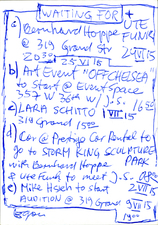 WAITING FOR
a) Bernhard Hoppe + UTE FUNK
@ 319 Grand Str 24 VI 15
20:30 23 VI 15
b) Art Event "OFFCHELSEA"
to Start @ Event Space
357 W 36th w/ J.S. 16:30
c) LARA SCHITTO VI 15
319 Grand 15:00
d) Car @ Prestige Car Rental to
go to STORM KING SCULPTURE
with Bernhard Hoppe PARK
& Ute Funk to meet J.S.
e) Mike Hsieh to start 2 VII 15
AUDITION @ 319 Grand 9 VII 15
19:00